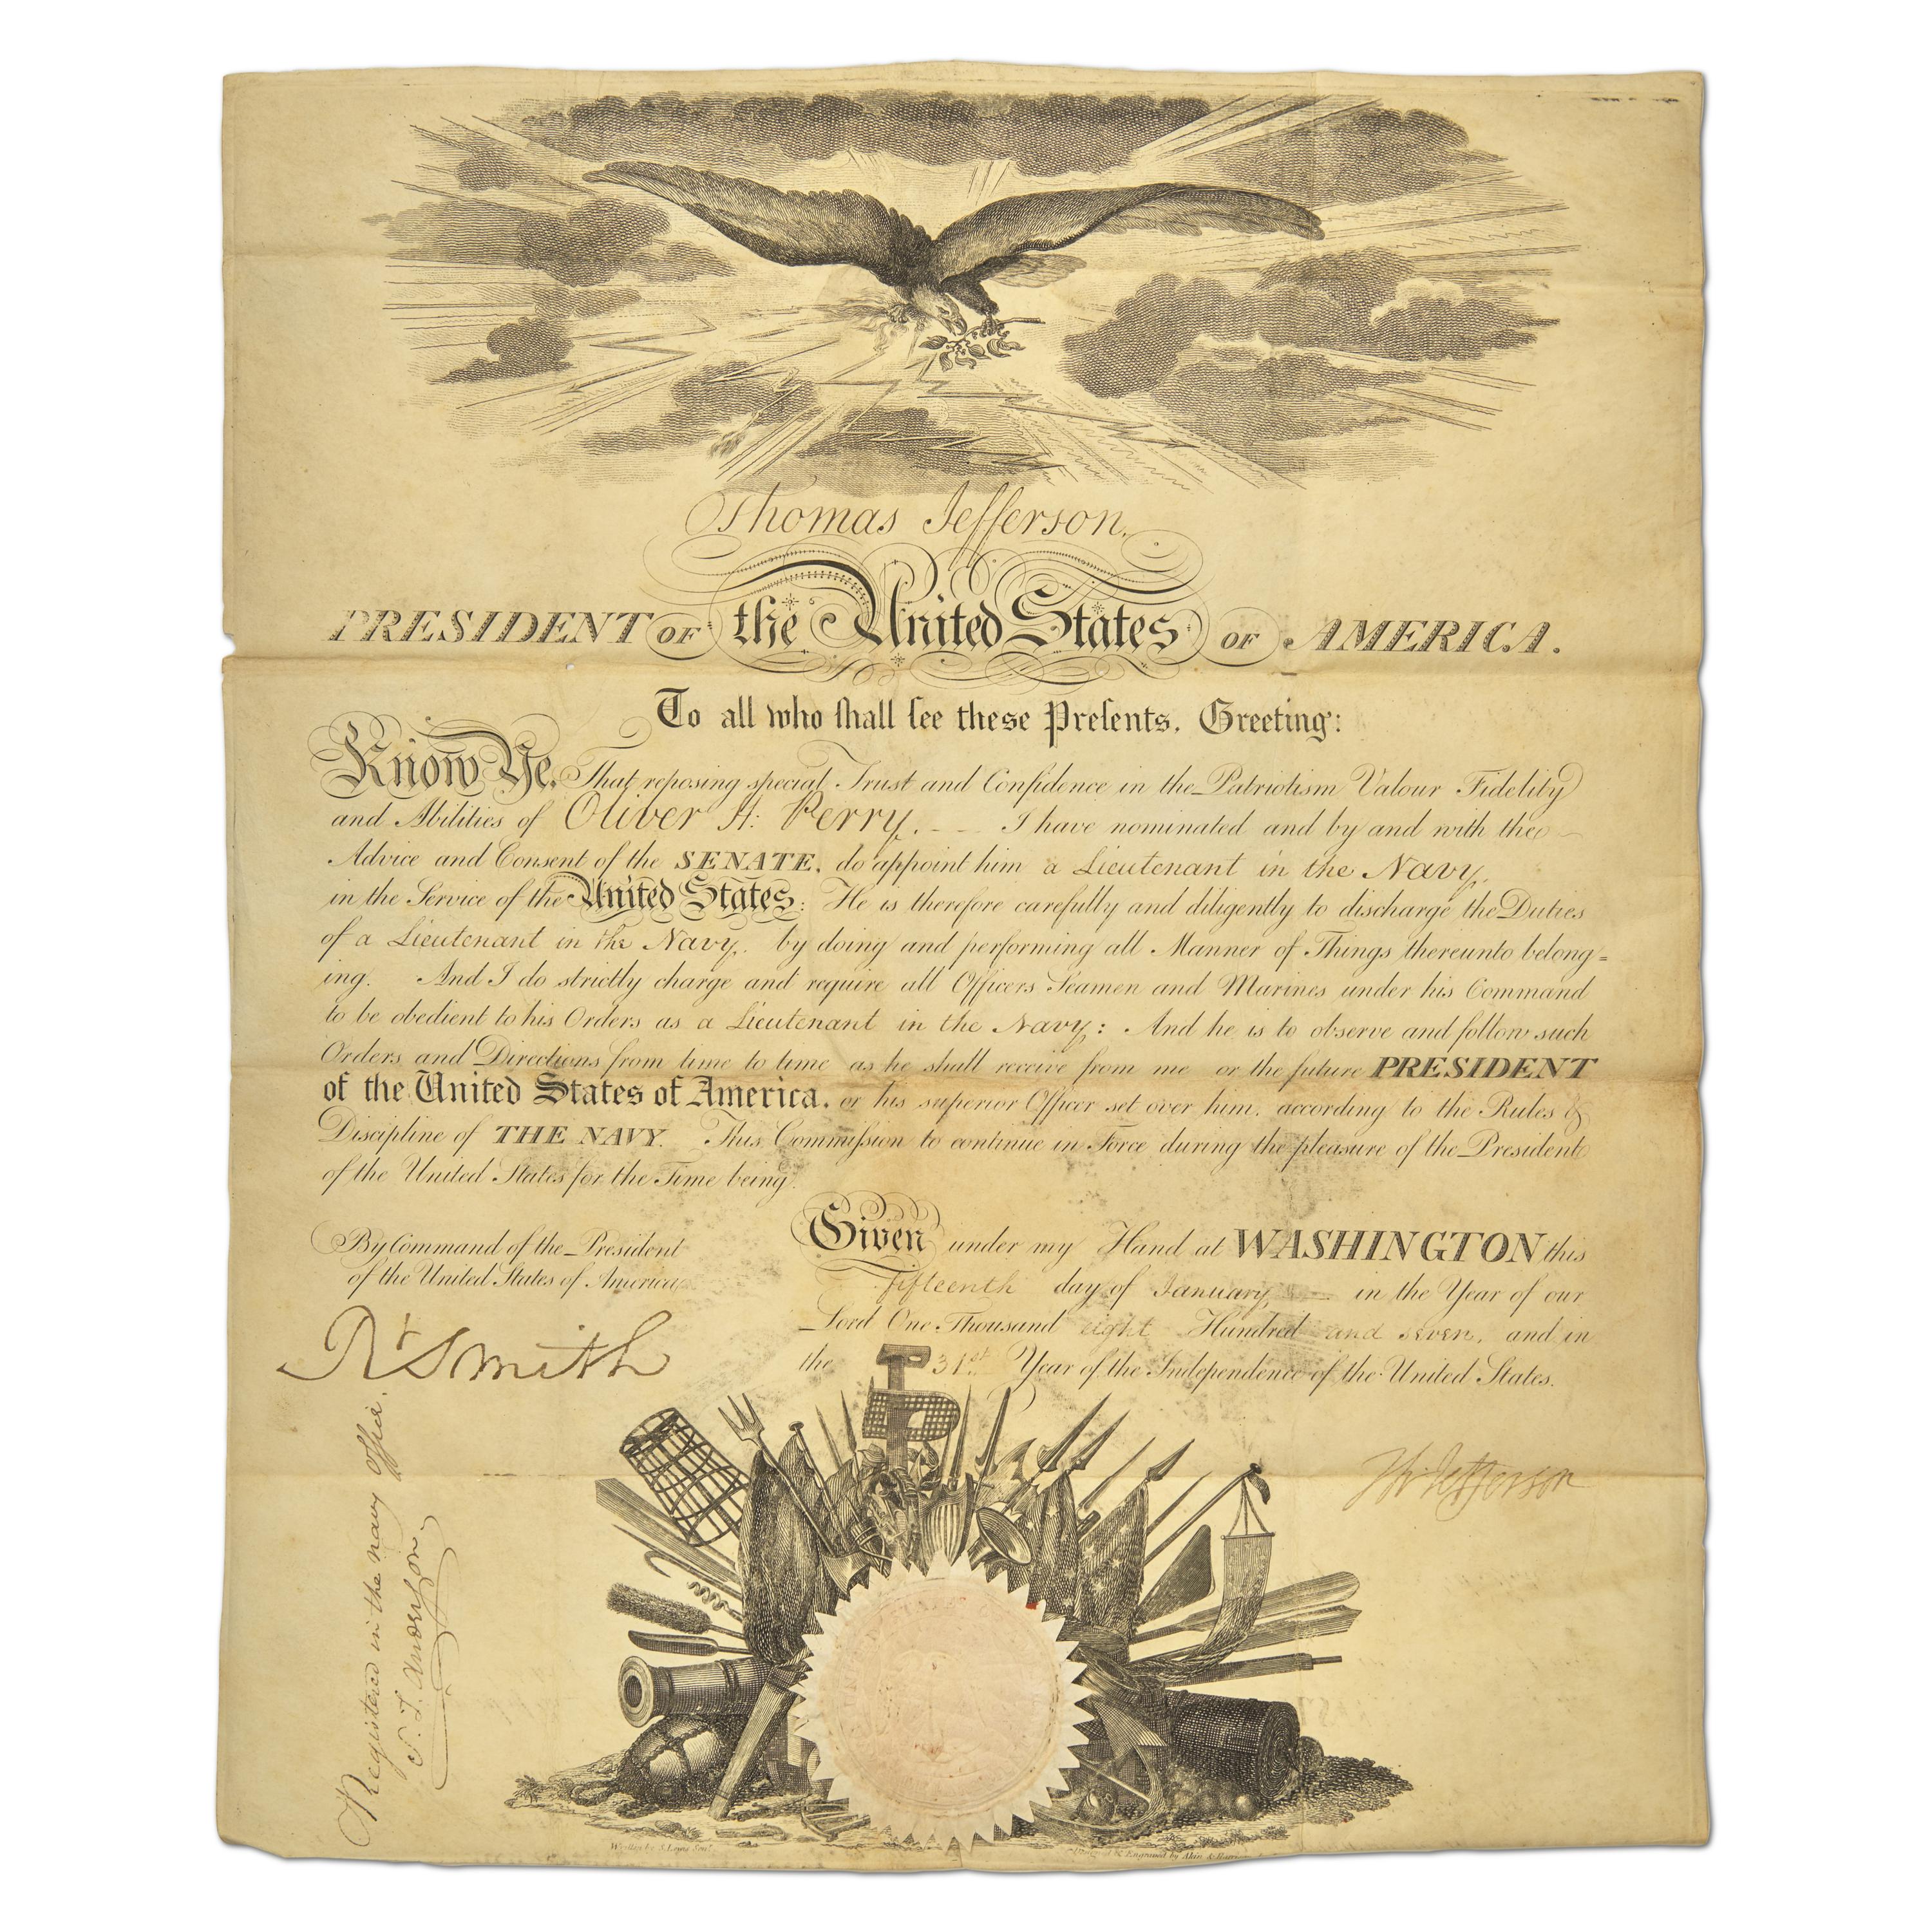 Thomas Jefferson.
PRESIDENT OF the United States OF AMERICA.
To all who ſhall ſee these Preſents, Greeting:
Know Ye, That reposing special Trust and Confidence in the Patriotism Valour Fidelity
and Abilities of Oliver H: Perry. I have nominated and by and with the
Advice and Consent of the SENATE, do appoint him a Lieutenant in the Navy,
in the Service of the United States: He is therefore carefully and diligently to discharge the Duties
of a Lieutenant in the Navy, by doing and performing all Manner of Things thereunto belong=
ing. And I do strictly charge and require all Officers Seamen and Marines under his Command
to be obedient to his Orders as a Lieutenant in the Navy: And he is to observe and follow such
Orders and Directions from time to time as he shall receive from me or the future PRESIDENT
of the United States of America, or his superior Officer set over him, according to the Rules &
Discipline of THE NAVY. This Commiſsion to continue in Force during the pleasure of the President
of the United States for the Time being.
By Command of the President
of the United States of America,
Rt Smith
Given under my Hand at WASHINGTON this
fifteenth day of January, in the Year of our
Lord One Thousand eight Hundred and seven, and in
the 31st Year of the Independence of the United States.
Th: Jefferson
Registered in the navy office.
Written by S. Lewis
Engraved by Akin &